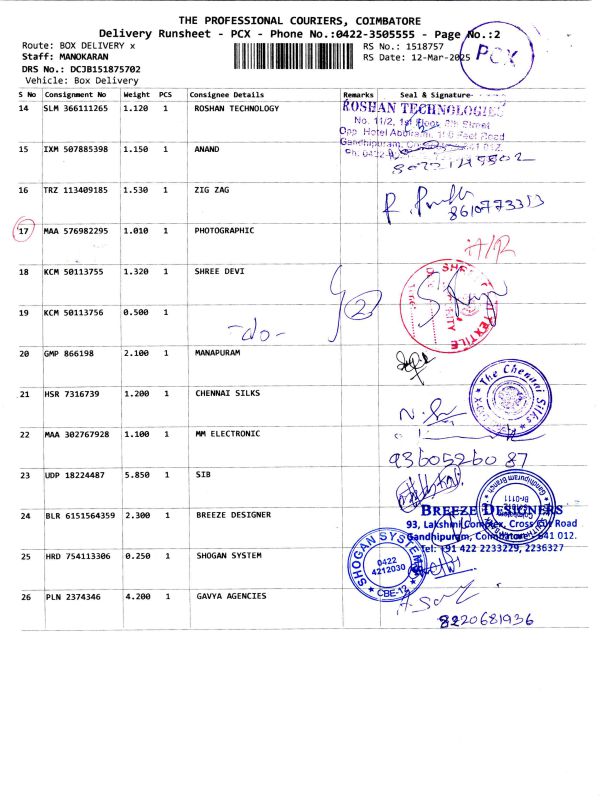 THE PROFESSIONAL COURIERS, COIMBATORE
Delivery Runsheet - PCX - Phone No.:0422-3505555 - Page No.:2
Route: BOX DELIVERY x RS No.: 1518757
Staff: MANOKARAN RS Date: 12-Mar-2025
PCX
DRS No.: DCJB151875702
Vehicle: Box Delivery
S No Consignment No Weight PCS Consignee Details Remarks Seal & Signature
14 SLM 366111265 1.120 1 ROSHAN TECHNOLOGY
ROSHAN TECHNOLOGIES
No. 11/2, 1st Floor, 8th Street
Opp. Hotel Abbirami, 100 Feet Road
Gandhipuram,
15 IXM 507885398 1.150 1 ANAND
16 TRZ 113409185 1.530 1 ZIG ZAG
8610773313
17 MAA 576982295 1.010 1 PHOTOGRAPHIC
A/R
18 KCM 50113755 1.320 1 SHREE DEVI
2
TEXTILE
19 KCM 50113756 0.500 1
-do-
20 GMP 866198 2.100 1 MANAPURAM
21 HSR 7316739 1.200 1 CHENNAI SILKS
The Chennai Silks
22 MAA 302767928 1.100 1 MM ELECTRONIC
9360526087
23 UDP 18224487 5.850 1 SIB
Gandhipuram Branch
Br-0111
24 BLR 6151564359 2.300 1 BREEZE DESIGNER
BREEZE DESIGNERS
93, Lakshmi Complex, Cross Cut Road
Gandhipuram, Coimbatore - 641 012.
Tel: +91 422 2233229, 2236327
25 HRD 754113306 0.250 1 SHOGAN SYSTEM
SHOGAN SYSTEMS
0422
4212030
CBE-12
26 PLN 2374346 4.200 1 GAVYA AGENCIES
8220681936